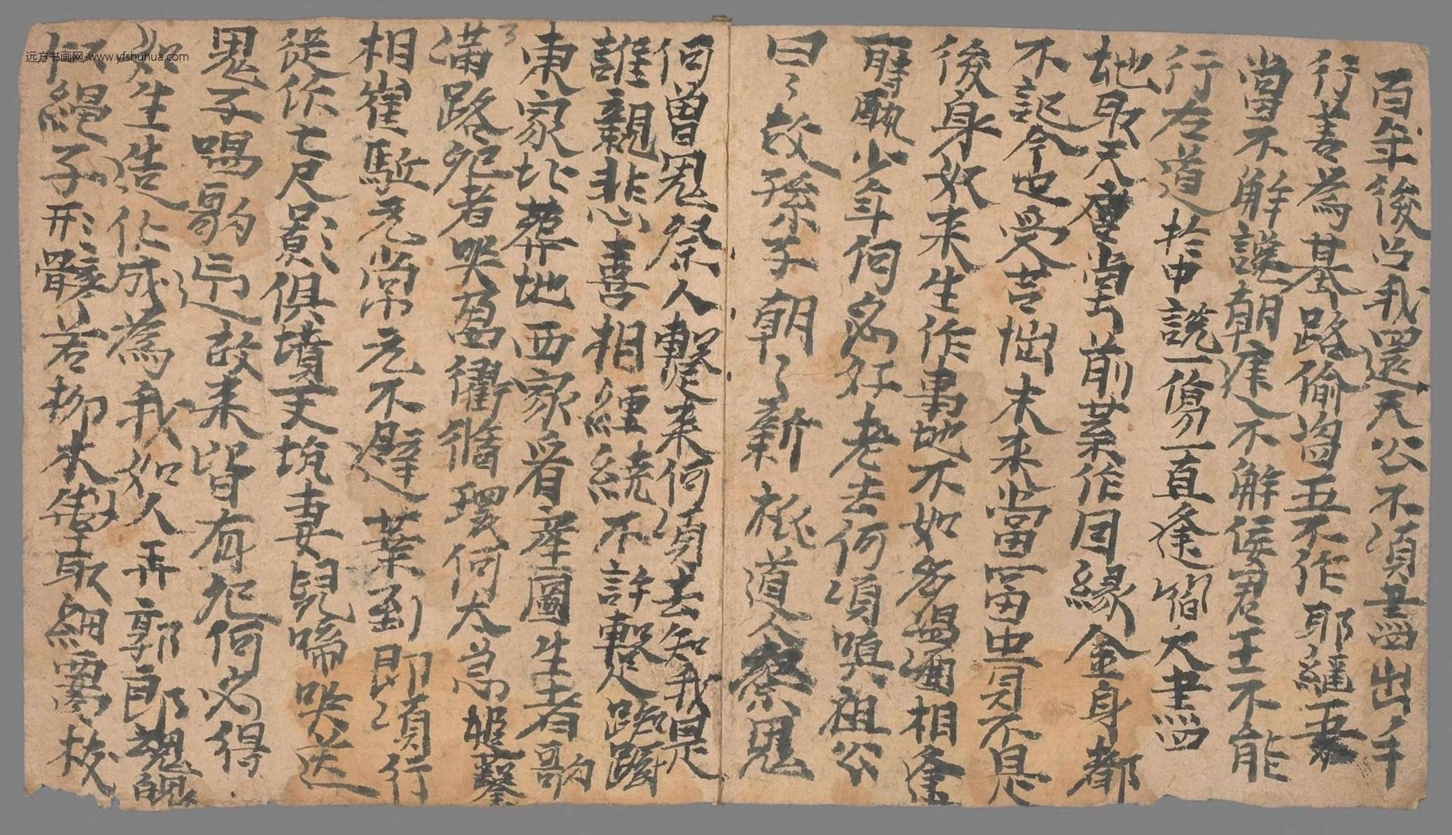 百年後召我還天公不須丑皿出手
行善為基路偷盗五不作耶纏吾
當不解讒朝廷不解佞君王不能
行左道於中說一傍一直逢箱大豊皿
地取天堂當前業作因緣金身都
不記今世受苦惱未來當富貴不是
後身奴來生作事地不如多温酒相逢
一時飲少年何必好老去何須嗔祖公
日〻故孫子朝〻新 祇道人祭鬼
何曾鬼祭人擊來何須去知我是
誰親悲喜相纏繞不許暫踟躕
東家北葬地西家看產圖生者歌
滿路死者哭盈衢循環何太急槌鑿
相崔駈无常元不避業到即須行
從你七尺影俱墳丈坑妻兒啼哭送
鬼子唱歌迎故來皆有死何必得
如生造化成為我如人弄郭郎魂魄
似繩子形骸若柳木掣取細腰枝
远方书画网-www.yfshuhua.com